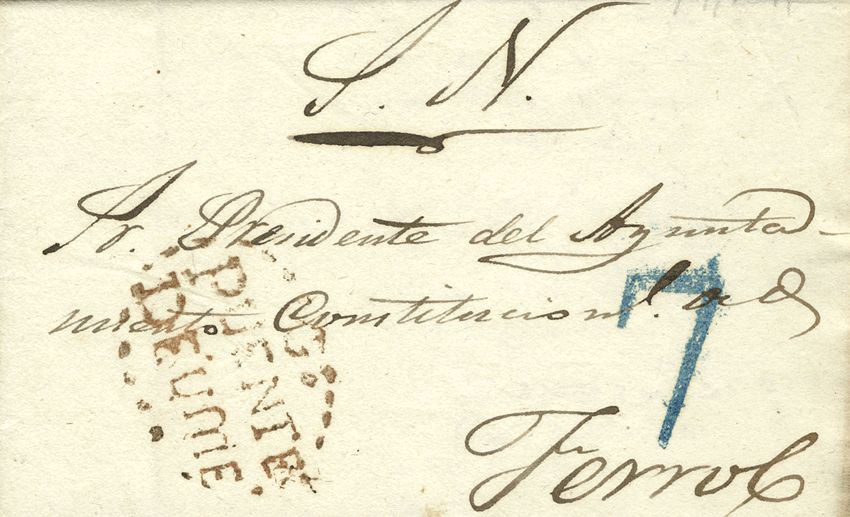 S. N.
Sr. Presidente del Ayunta-
miento Constitucional. de
Ferrol
7
PUENTE
DEUME